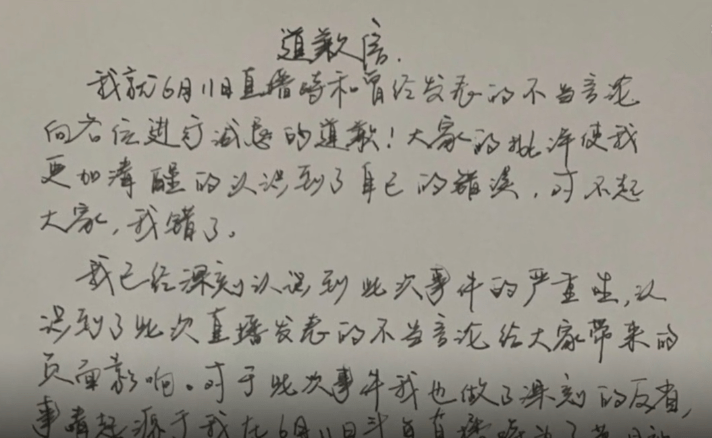 道歉信.
我就6月11日直播时和曾经发表的不当言论
向各位进行诚恳的道歉！大家的批评使我
更加清醒的认识到了自己的错误，对不起
大家，我错了。
我已经深刻认识到此次事件的严重性，认
识到了此次直播发表的不当言论给大家带来的
页面影响。对于此次事件我也做了深刻的反省，
事情起源于我在6月11日斗鱼直播